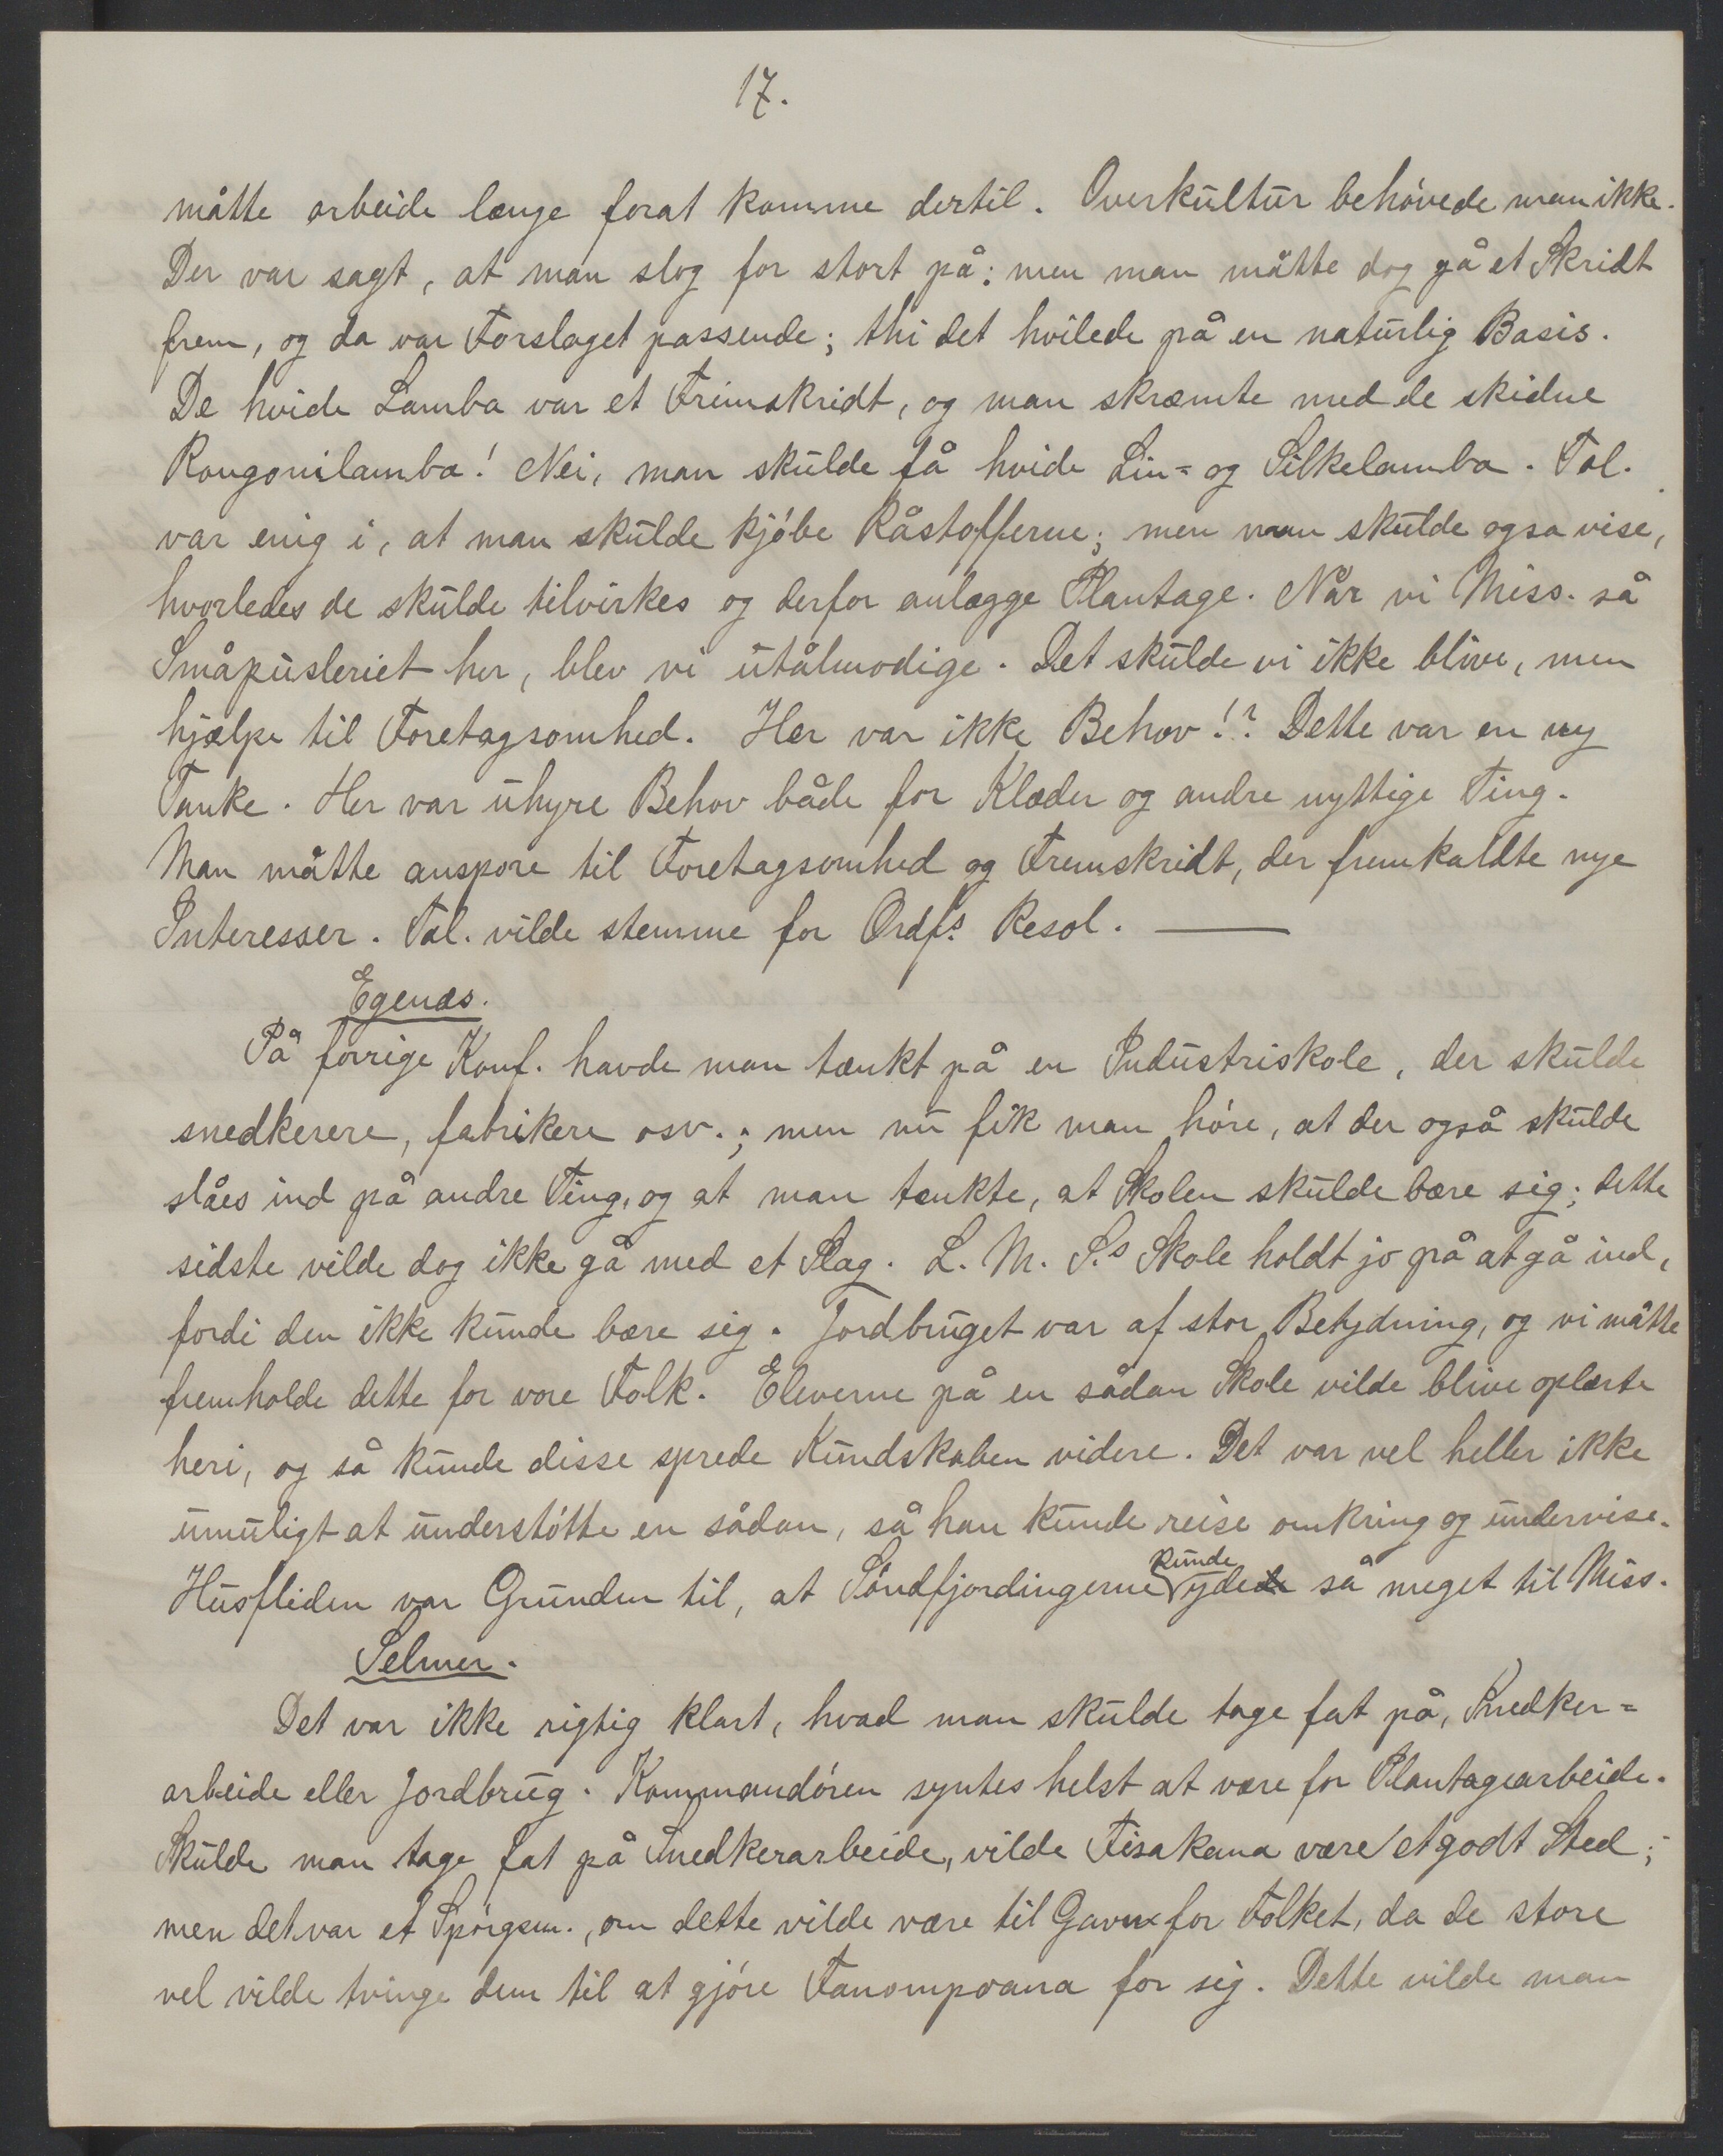 17.
måtte arbeide længe forat komme dertil. Overkultur behóvede man ikke.
Der var sagt, at man slog for stort på: men man måtte dog gå et Skridt
frem, og da var Forslaget passende; thi det hvilede på en naturlig Basis.
De hvide Lamba var et Fremskridt, og man skræmte med de skidne
Rongonilamba! Nei, man skulde få hvide Lin= og Silkelamba. Tal.
var enig i, at man skulde kjóbe Råstofferne; men man skulde ogsa vise,
hvorledes de skulde tilvirkes og derfor anlægge Plantage. Når vi Miss. så
Småpusleriet her, blev vi utålmodige. Det skulde vi ikke blive, men
hjælpe til Foretagsomhed. Her var ikke Behov!? Dette var en ny
Tanke. Her var uhyre Behov både for Klæder og andre nyttige Ting.
Man måtte anspore til Foretagsomhed og Fremskridt, der fremkaldte nye
Interesser. Tal. vilde stemme for Ordfs. Resol. —
Egenæs.
På forrige Konf. havde man tænkt på en Industriskole, der skulde
snedkerere, fabrikere osv.; men nu fik man hóre, at der også skulde
slåes ind på andre Ting, og at man tænkte, at Skolen skulde bære sig; dette
sidste vilde dog ikke gå med et Slag. L. M. S.s Skole holdt jo på at gå ind,
fordi den ikke kunde bære sig. Jordbruget var af stor Betydning, og vi måtte
fremholde dette for vore Folk. Eleverne på en sådan Skole vilde blive oplærte
heri, og så kunde disse sprede Kundskaben videre. Det var vel heller ikke
umuligt at understótte en sådan, så han kunde reise omkring og undervise.
Husfliden var Grunden til, at Sóndfjordingerne kunde yde så meget til Miss.
Selmer.
Det var ikke rigtig klart, hvad man skulde tage fat på, Snedker=
arbeide eller Jordbrug. Kommandóren syntes helst at være for Plantagearbeide.
Skulde man tage fat på Snedkerarbeide, vilde Fisakana være et godt Sted;
men det var et Spórgsm., om dette vilde være til Gavn for Folket, da de store
vel vilde tvinge dem til at gjóre Fanompoana for sig. Dette vilde man